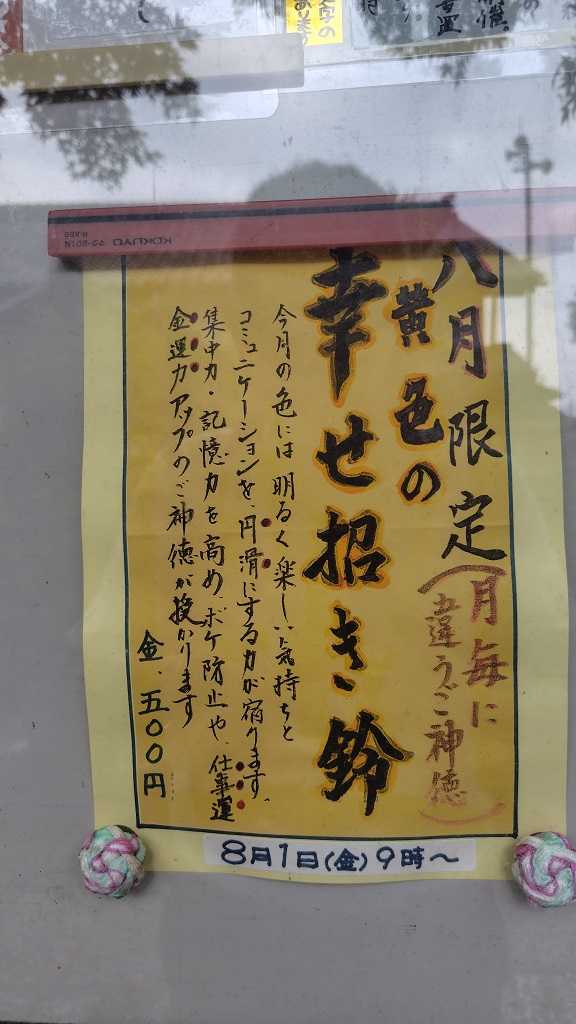 八月限定
(月毎に
違うご神徳)
黄色の
幸せ招き鈴
今月の色には明るく楽しい気持ちと
コミュニケーションを、円滑にする力が宿ります。
集中力・記憶力を高め、ボケ防止や、仕事運
金運力アップのご神徳が授かります
金、五〇〇円
8月1日(金)9時~
KOKUYO